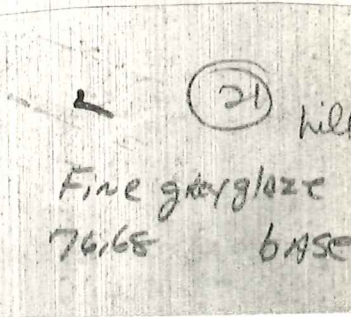 21
Fine grey glaze
76.68 base